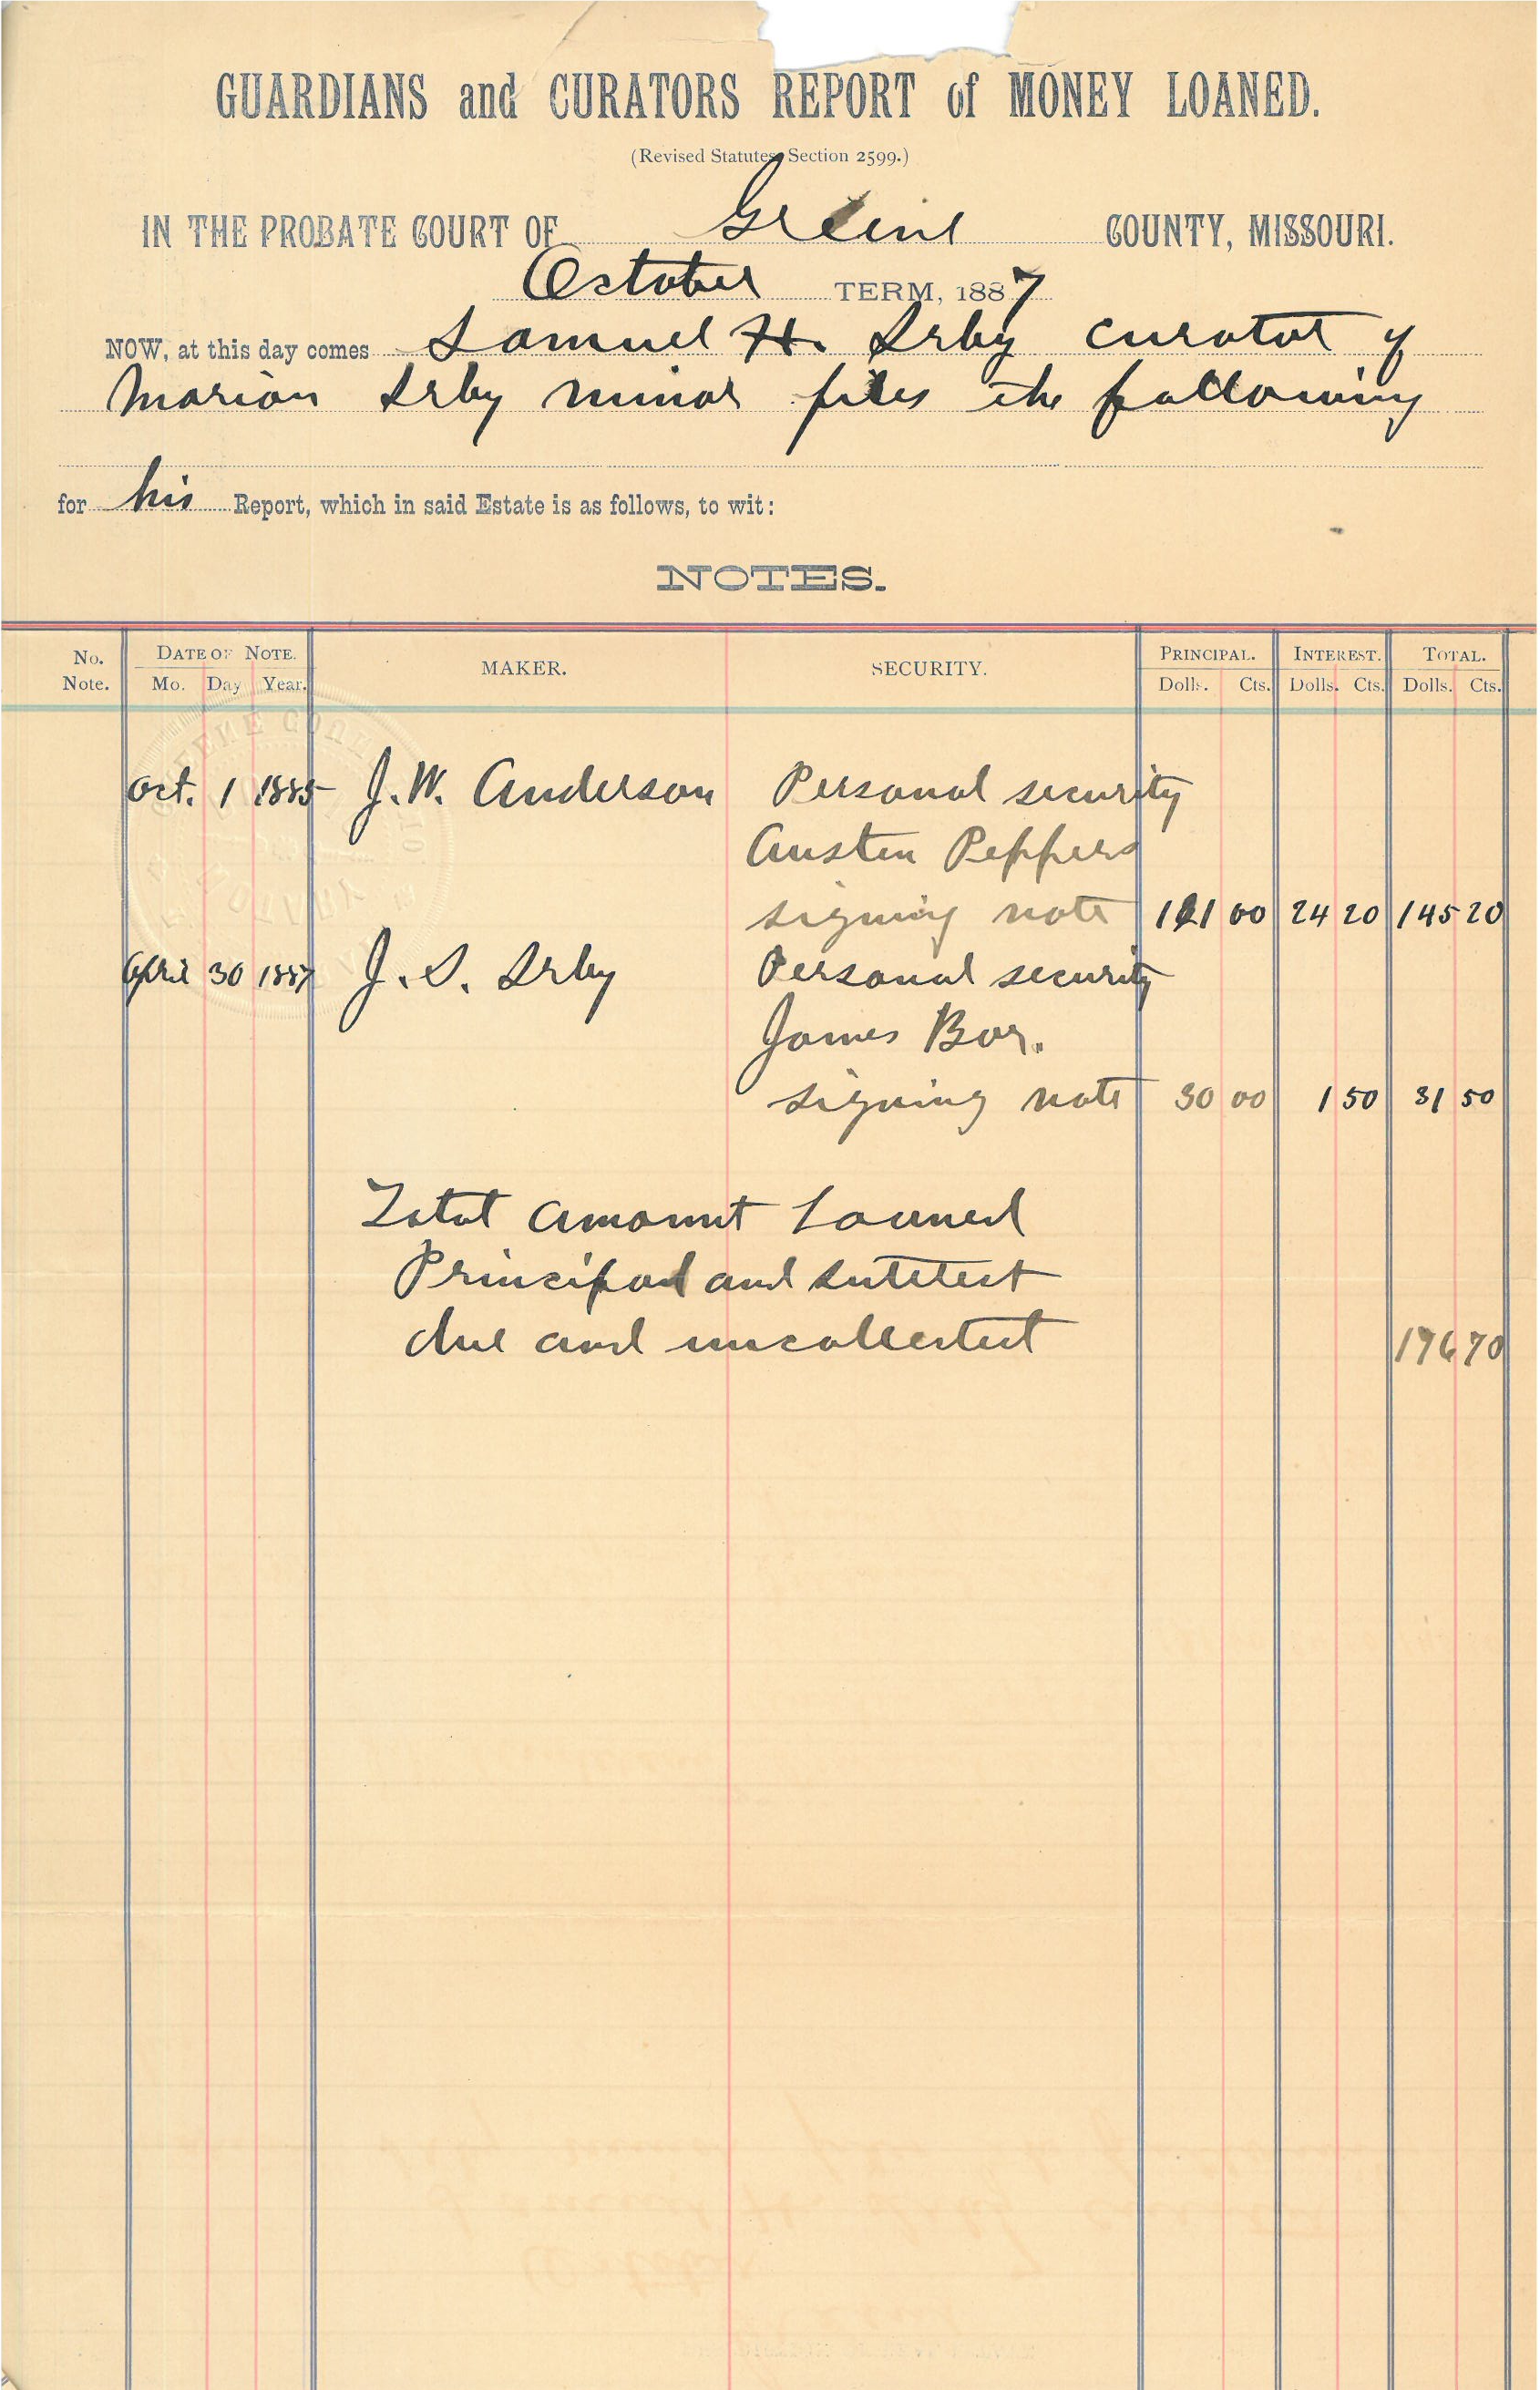 GUARDIANS and CURATORS REPORT of MONEY LOANED.
(Revised Statutes, Section 2599.)
IN THE PROBATE COURT OF Greene COUNTY, MISSOURI.
October TERM, 1887
NOW, at this day comes Samuel H. Irby curator of
Marion Irby minor files the following
for his Report, which in said Estate is as follows, to wit:
NOTES.
No. Note. DATE OF NOTE. Mo. Day Year. MAKER. SECURITY. PRINCIPAL. Dolls. Cts. INTEREST. Dolls. Cts. TOTAL. Dolls. Cts.
Oct. 1 1885 J. W. Anderson Personal security
Austen Peppers
signing note 121 00 24 20 145 20
April 30 1887 J. S. Irby Personal security
James
signing note 30 00 1 50 31 50
Total amount Loaned
Principal and Interest
due and uncollected 176 70